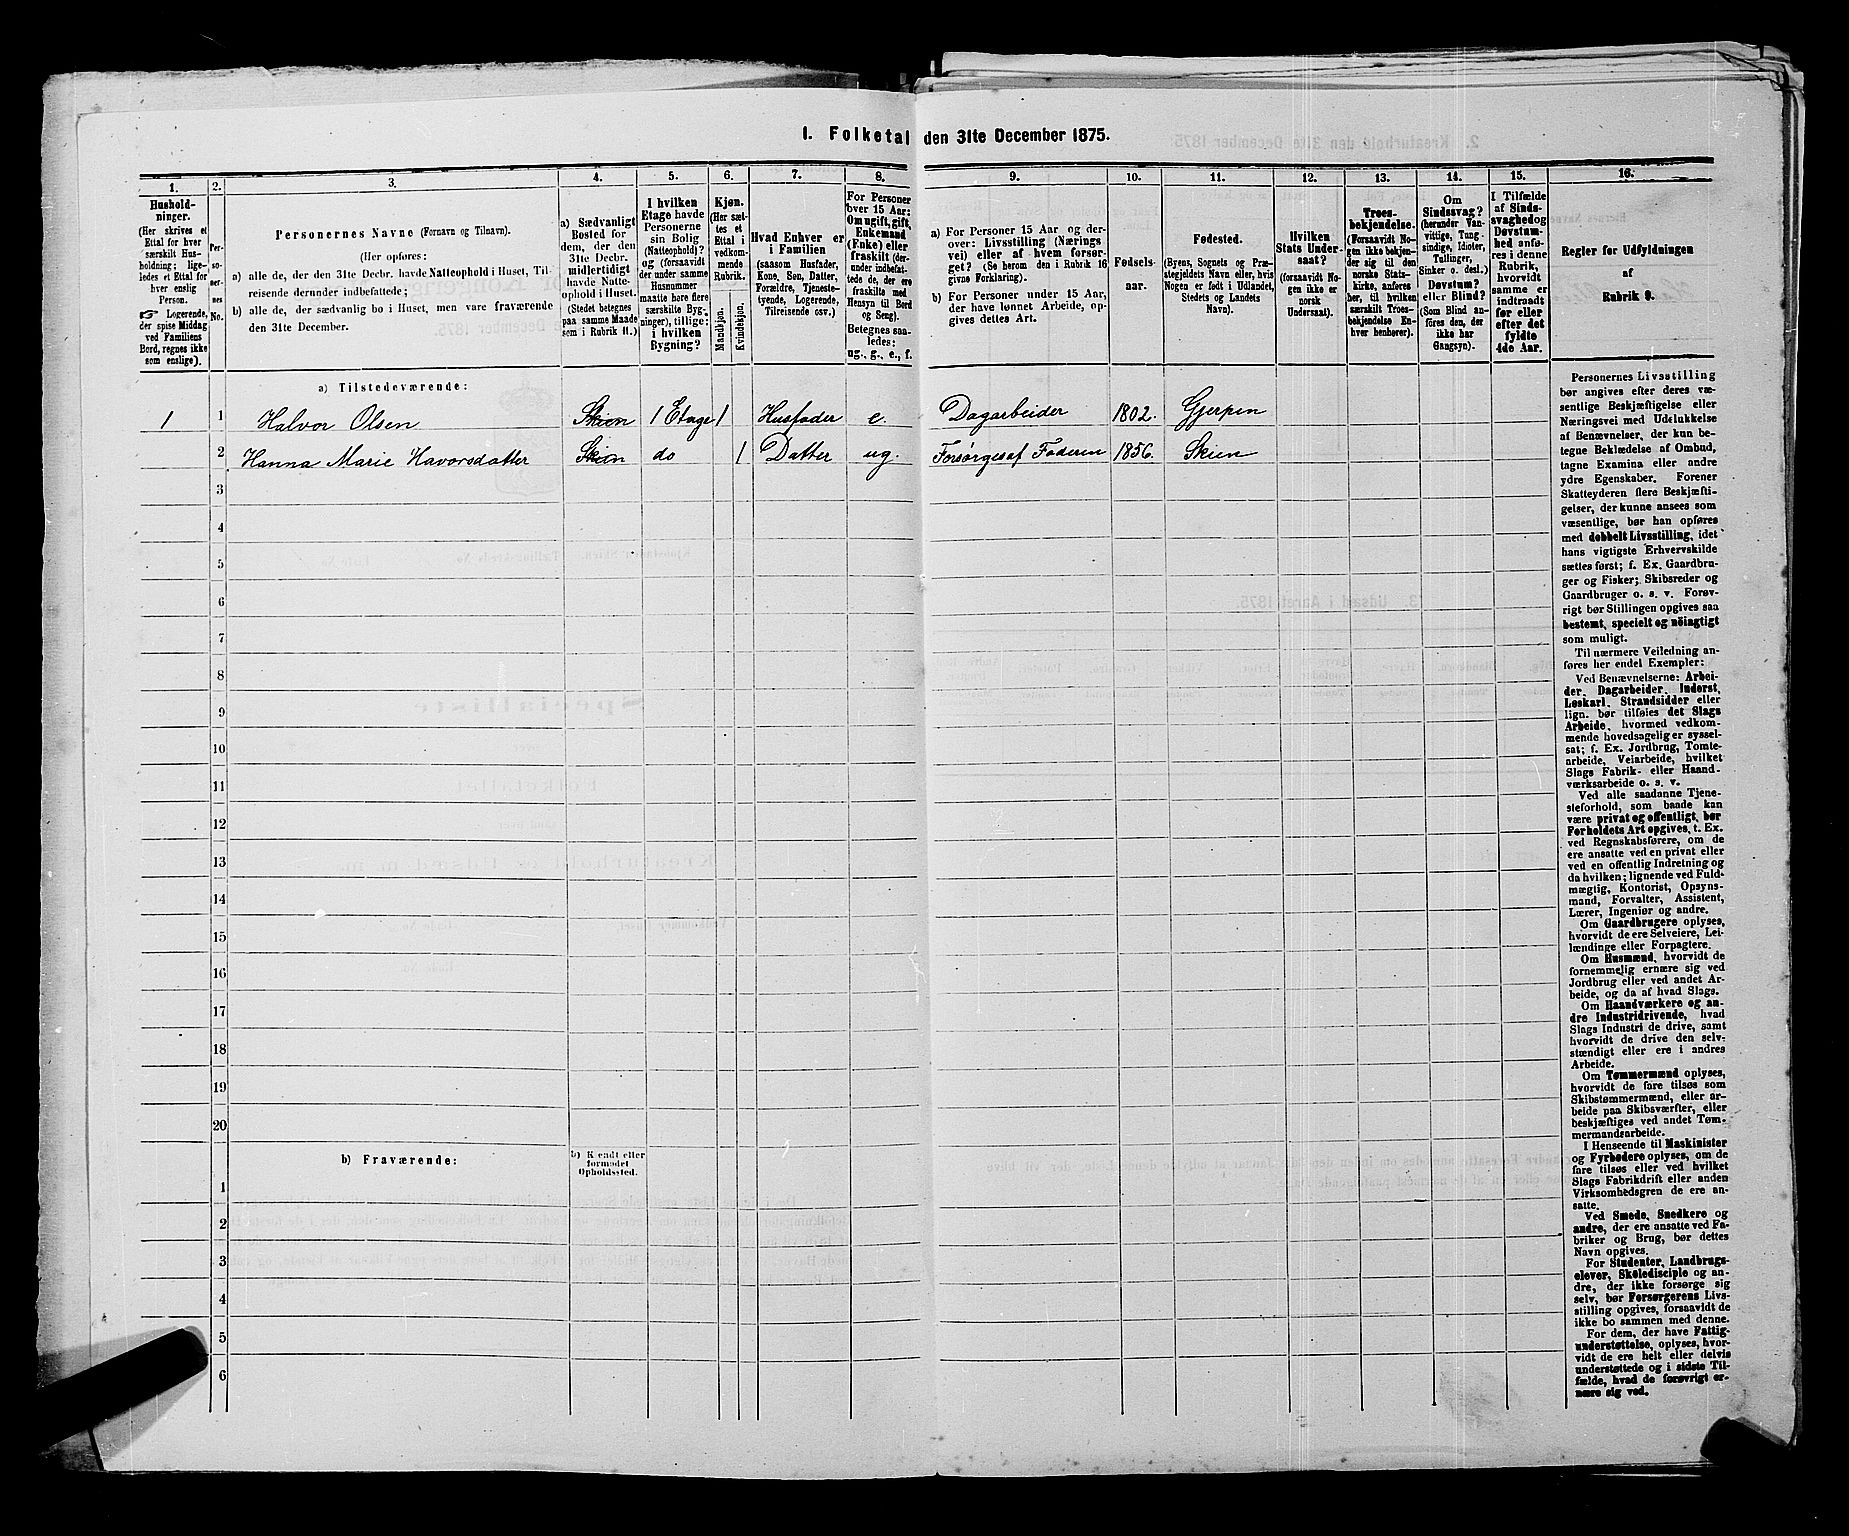 1. Folketal den 31te December 1875.
1. 2. 3. 4. 5. 6. 7. 8. 9. 10. 11. 12. 13. 14. 15. 16.
Hushold-
ninger.
(Her skrives et
Ettal for hver
særskilt Hus-
holdning; lige-
ledes et Ettal for
hver enslig
Person.
☞ Logerende,
der spise Middag
ved Familiens
Bord, regnes ikke
som enslige).
Per-
so-
ner-
nes
No.
Personernes Navne (Fornavn og Tilnavn).
(Her opføres:
a) alle de, der den 31te Decbr. havde Natteophold i Huset, Til-
reisende derunder indbefattede;
b) alle de, der sædvanlig bo i Huset, men vare fraværende
den 31te December.
a) Sædvanligt
Bosted for
dem, der den
31te Decbr.
midlertidigt
havde Natte-
ophold i Huset.
(Stedet betegnes
paa samme Maade
som i Rubrik 11.)
I hvilken
Etage havde
Personerne
sin Bolig
(Natteophold)?
og (forsaavidt
der under samme
Husnummer
maatte høre flere
særskilte Byg-
ninger), tillige:
i hvilken
Bygning?
Kjøn.
(Her sæt-
tes et
Ettal i
vedkom-
mende
Rubrik.
Mandkjøn.
Kvindekjøn.
Hvad Enhver er
i Familien
(saasom Husfader,
Kone, Søn, Datter,
Forældre, Tjeneste-
tyende, Logerende,
Tilreisende osv.)
For Personer
over 15 Aar:
Om ugift, gift,
Enkemand
(Enke) eller
fraskilt (der-
under indbefat-
tede de, der ere
fraskilte med
Hensyn til Bord
og Seng).
Betegnes saa-
ledes:
ug., g., e., f.
a) For Personer 15 Aar og der-
over: Livsstilling (Nærings
vei) eller af hvem forsør-
get? (Se herom den i Rubrik 16
givne Forklaring).
b) For Personer under 15 Aar,
der have lønnet Arbeide, op-
gives dettes Art.
Fødsels-
aar.
Fødested.
(Byens, Sognets og Præ-
stegjeldets Navn eller, hvis
Nogen er født i Udlandet,
Stedets og Landets
Navn).
Hvilken
Stats Under-
saat?
(forsaavidt No-
gen ikke er
norsk
Undersaat).
Troes-
bekjendelse.
(Forsaavidt No-
gen ikke bekjen-
der sig til den
norske Stats-
kirke, anføres
her, til hvilken
særskilt Troes-
bekjendelse En-
hver henhører).
Om
Sindssvag?
(herunder Van-
vittige, Tung-
sindige, Idioter,
Tullinger,
Sinker o. desl.)
Døvstum?
eller Blind?
(Som Blind an-
føres den, der
ikke har
Gangsyn).
I Tilfælde
af Sinds-
svaghed og
Døvstum-
hed anfø-
res i denne
Rubrik,
hvorvidt
samme er
indtraadt
før eller
efter det
fyldte
4de Aar.
Regler for Udfyldningen
af
Rubrik 9.
a) Tilstedeværende:
1 1 Halvor Olsen Skien 1 Etage 1 Husfader e. Dagarbeider 1802. Gjerpen
2 Hanna Marie Havorsdatter Skien do 1 Datter ug. Forsørges af Faderen 1856. Skien
3
4
5
6
7
8
9
10
11
12
13
14
15
16
17
18
19
20
b) Fraværende:
b) Kjendt eller
formodet
Opholdssted.
1
2
3
4
5
6
Personernes Livsstilling
bør angives efter deres væ-
sentlige Beskjæftigelse eller
Næringsvei med Udelukkelse
af Benævnelser, der kun be-
tegne Beklædelse af Ombud,
tagne Examina eller andre
ydre Egenskaber. Forener
Skatteyderen flere Beskjæfti-
gelser, der kunne ansees som
væsentlige, bør han opføres
med dobbelt Livsstilling, idet
hans vigtigste Erhvervskilde
sættes først; f. Ex. Gaardbru-
ger og Fisker; Skibsreder og
Gaardbruger o. s. v. Forøv-
rigt bør Stillingen opgives saa
bestemt, specielt og nöiagtigt
som muligt.
Til nærmere Veiledning an-
føres her endel Exempler:
Ved Benævnelserne: Arbei-
der, Dagarbeider, Inderst,
Løskarl, Strandsidder eller
lign. bør tilføies det Slags
Arbeide, hvormed vedkom-
mende hovedsagelig er syssel-
sat; f. Ex. Jordbrug, Tomte-
arbeide, Veiarbeide, hvilket
Slags Fabrik- eller Haand-
værksarbeide o. s. v.
Ved alle saadanne Tjene-
steforhold, som baade kan
være privat og offentligt, bør
Forholdets Art opgives, t. Ex.
ved Regnskabsførere, om de
ere ansatte ved en privat eller
ved en offentlig Indretning og
da hvilken; lignende ved Fuld-
mægtig, Kontorist, Opsyns-
mand, Forvalter, Assistent,
Lærer, Ingeniør og andre.
Om Gaardbrugere oplyses,
hvorvidt de ere Selveiere, Lei-
lændinge eller Forpagtere.
Om Husmænd, hvorvidt de
fornemmelig ernære sig ved
Jordbrug eller ved andet Ar-
beide, og da af hvad Slags.
Om Haandværkere og an-
dre Industridrivende, hvad
Slags Industri de drive, samt
hvorvidt de drive den selv-
stændigt eller ere i andres
Arbeide.
Om Tømmermænd oplyses,
hvorvidt de fare tilsøs som
Skibstømmermænd, eller ar-
beide paa Skibsværfter, eller
beskjæftiges ved andet Tøm-
mermandsarbeide.
I Henseende til Maskinister
og Fyrbødere oplyses, om de
fare tilsøs eller ved hvilket
Slags Fabrikdrift eller anden
Virksomhedsgren de ere an-
satte.
Ved Smede, Snedkere og
andre, der ere ansatte ved Fa-
briker og Brug, bør dettes
Navn opgives.
For Studenter, Landbrugs-
elever, Skoledisciple og an-
dre, der ikke forsørge sig
selv, bør Forsørgerens Livs-
stilling opgives, forsaavidt de
ikke bo sammen med denne.
For dem, der have Fattig-
understøttelse, oplyses, hvor-
vidt de ere helt eller delvis
understøttede og i sidste Til-
fælde, hvad de forøvrigt er-
nære sig ved.